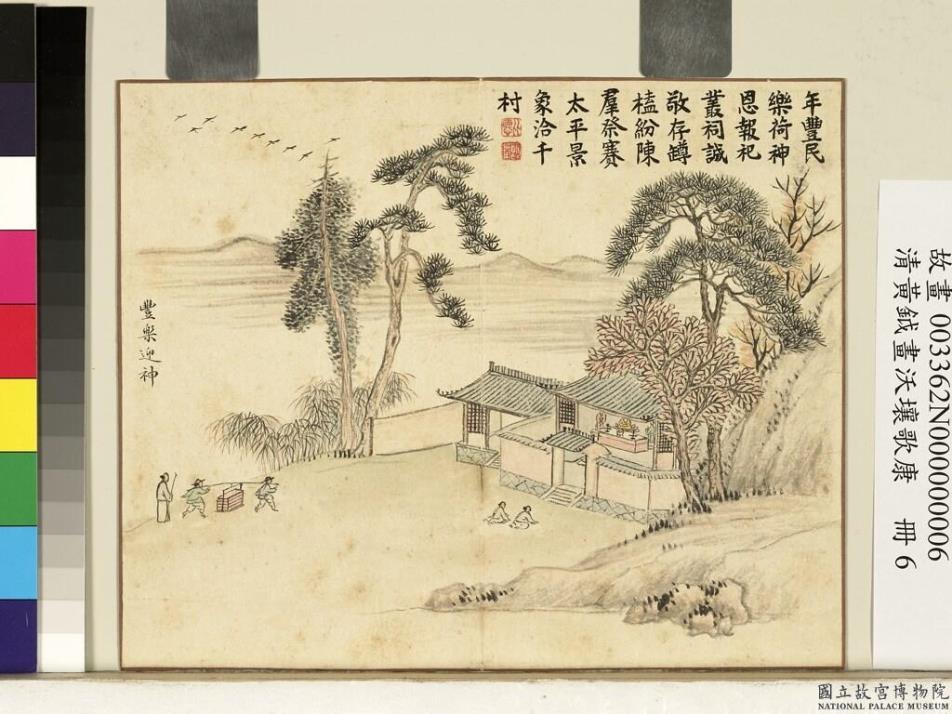 年豐民
樂荷神
恩報祀
叢祠誠
敬存罇
榼紛陳
羣祭賽
太平景
象洽千
村
豐樂迎神
故畫 003362N000000006
清黃鉞畫沃壤歌康 冊 6
國立故宮博物院
NATIONAL PALACE MUSEUM